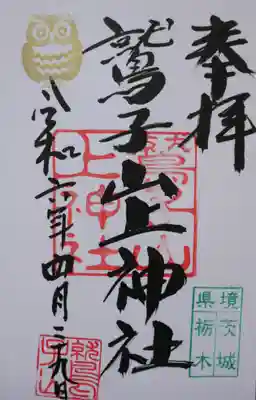 奉拝
鷲子山上神社
令和六年四月二十九日
鷲子山
上神社
境茨城
県栃木